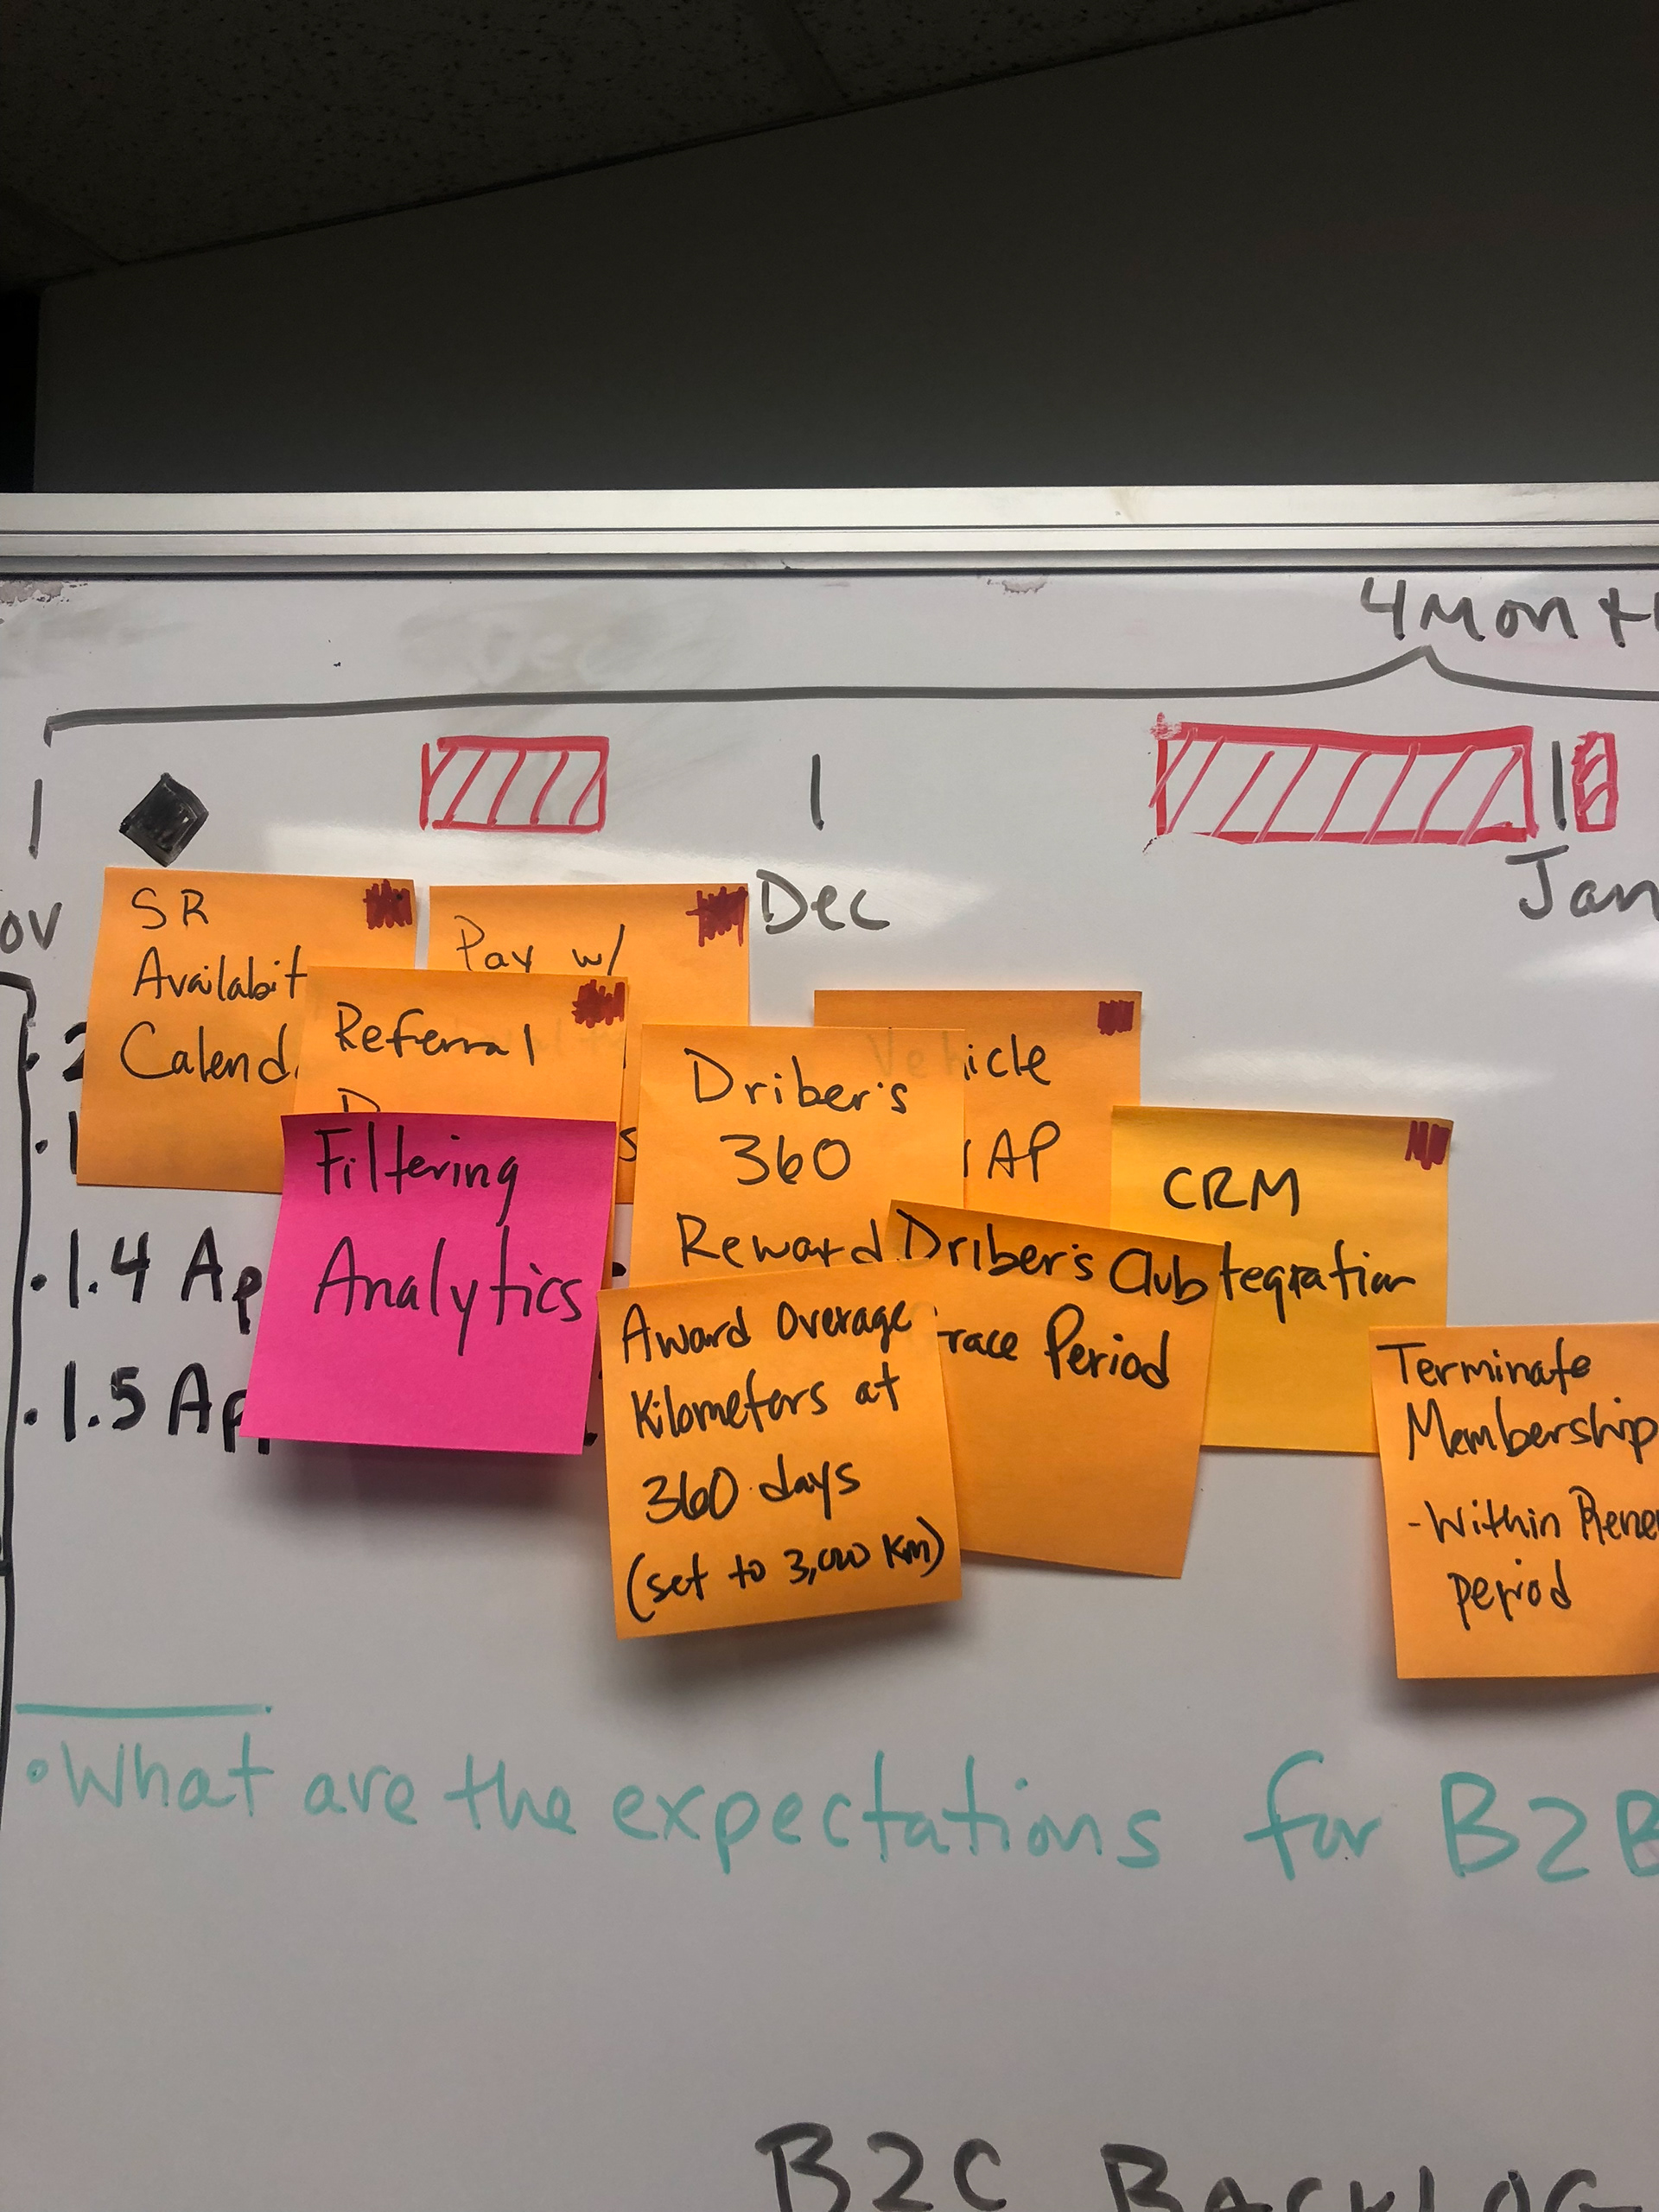 4 Mon
Dec
Jan
SR
Availabit
Calend
Pay w/
Referral
Filtering
Analytics
Driber's
360
Reward
Vehicle
AP
CRM
tegration
Driber's Club
race Period
Award Overage
Kilometers at
360 days
(set to 3,000 KM)
Terminate
Membership
-Within Rene
period
.1.4 Ap
.1.5 Ap
•What are the expectations for B2B
B2C BACKLOG